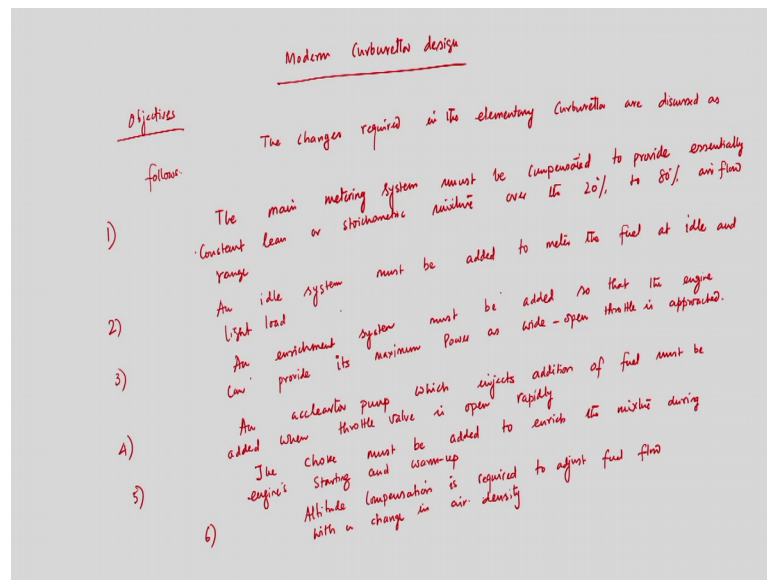 Modern Curburettor design
Objectives
The changes required in the elementary Curburettor are discussed as
follows.
1) The main metering system must be compensated to provide essentially
Constant lean or stoichometric mixture over the 20% to 80% air flow
range
2) An idle system must be added to meter the fuel at idle and
light load
3) An enrichment system must be added so that the engine
can provide its maximum Power as wide-open throttle is approached.
4) An accleartor pump which injects addition of fuel must be
added when throttle valve is open rapidly
5) The choke must be added to enrich the mixture during
engine's starting and warm-up
6) Altitude Compensation is required to adjust fuel flow
with a change in air density